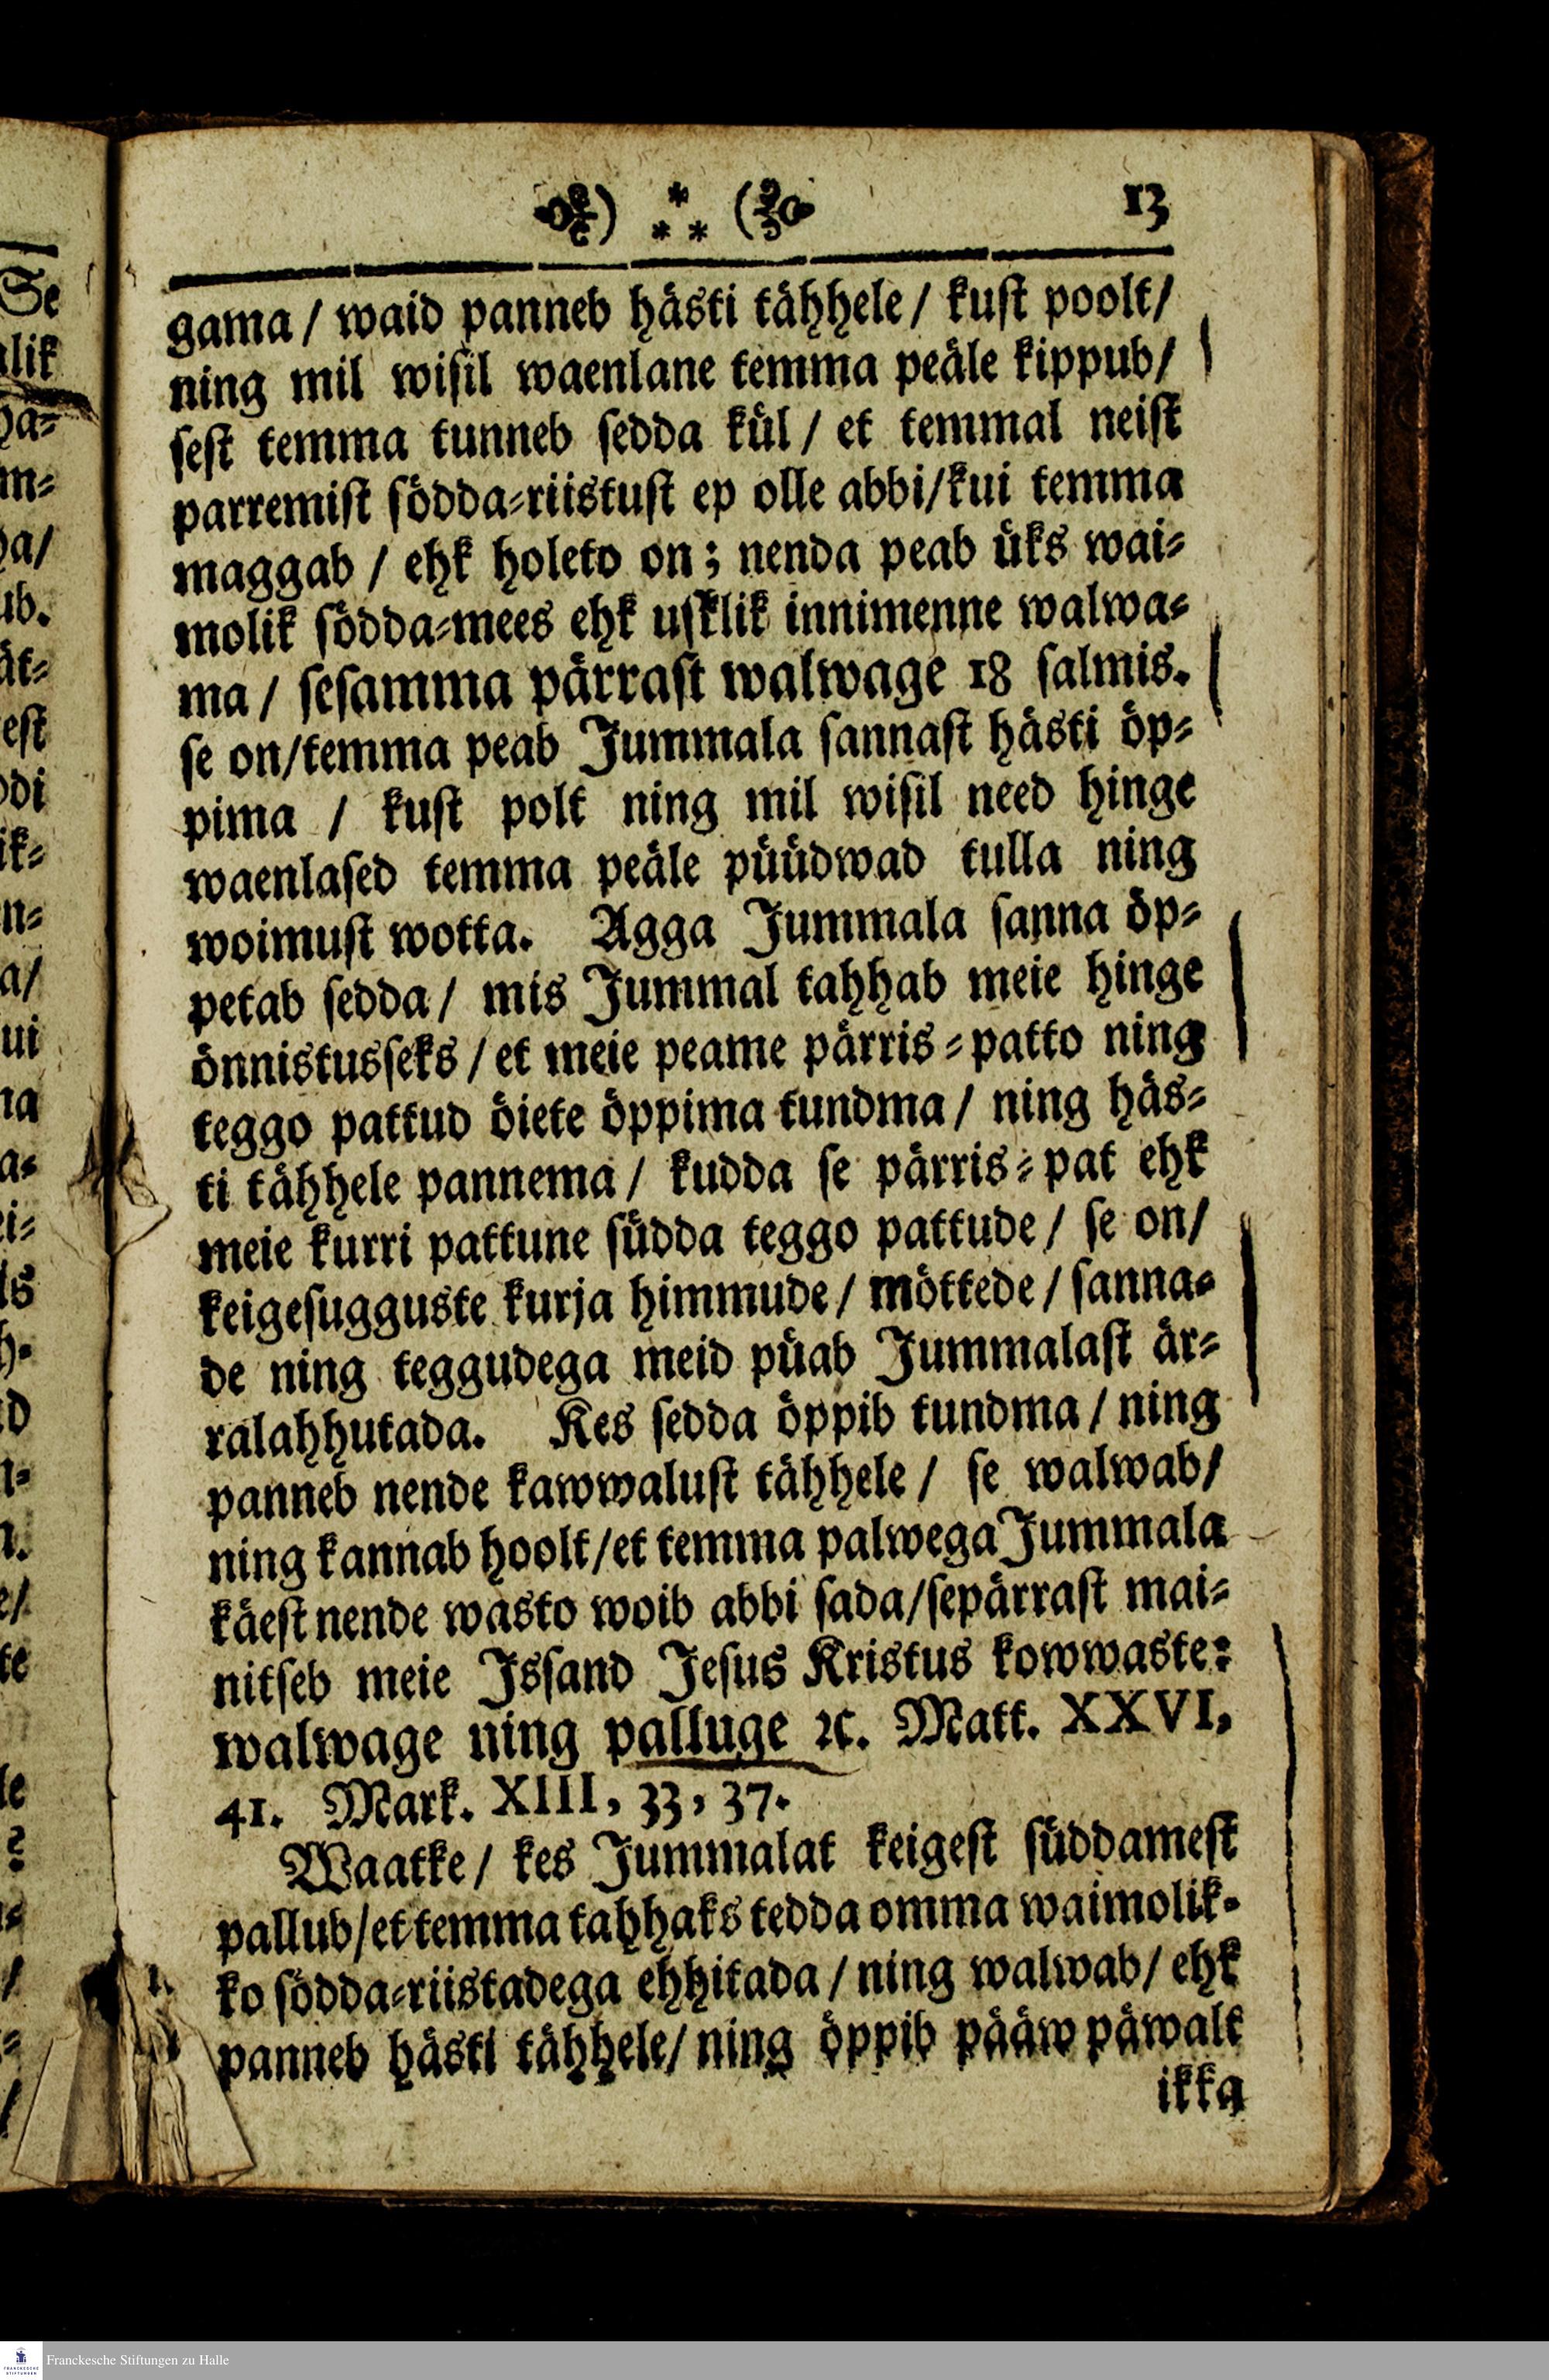 13
gama / waid panneb hästi tähhele / kust poolt /
ning mil wisil waenlane temma peäle kippub /
sest temma tunneb sedda kül / et temmal neist
parremist södda-riistust ep olle abbi / kui temma
maggab / ehk holeto on; nenda peab üks wai-
molik södda-mees ehk usklik innimenne walwa-
ma / sesamma pärrast walwage 18 salmis.
se on / temma peab Jummala sannast hästi öp-
pima / kust polt ning mil wisil need hinge
waenlased temma peäle püüdwad tulla ning
woimust wotta. Agga Jummala sanna öp-
petab sedda / mis Jummal tahhab meie hinge
önnistusseks / et meie peame pärris-patto ning
teggo pattud öiete öppima tundma / ning häs-
ti tähhele pannema / kudda se pärris-pat ehk
meie kurri pattune südda teggo pattude / se on /
keigesugguste kurja himmude / möttede / sanna-
de ning teggudega meid püab Jummalast är-
ralahhutada. Kes sedda öppib tundma / ning
panneb nende kawwalust tähhele / se walwab /
ning kannab hoolt / et temma palwega Jummala
käest nende wasto woib abbi sada / sepärrast mai-
nitseb meie Issand Jesus Kristus kowwaste:
walwage ning palluge ꝛc. Matt. XXVI,
41. Mark. XIII, 33, 37.
Waatke / kes Jummalat keigest süddamest
pallub / et temma tahhaks tedda omma waimolik-
ko södda-riistadega ehhitada / ning walwab / ehk
panneb hästi tähhele / ning öppib pääw päwalt
ikka
Franckesche Stiftungen zu Halle